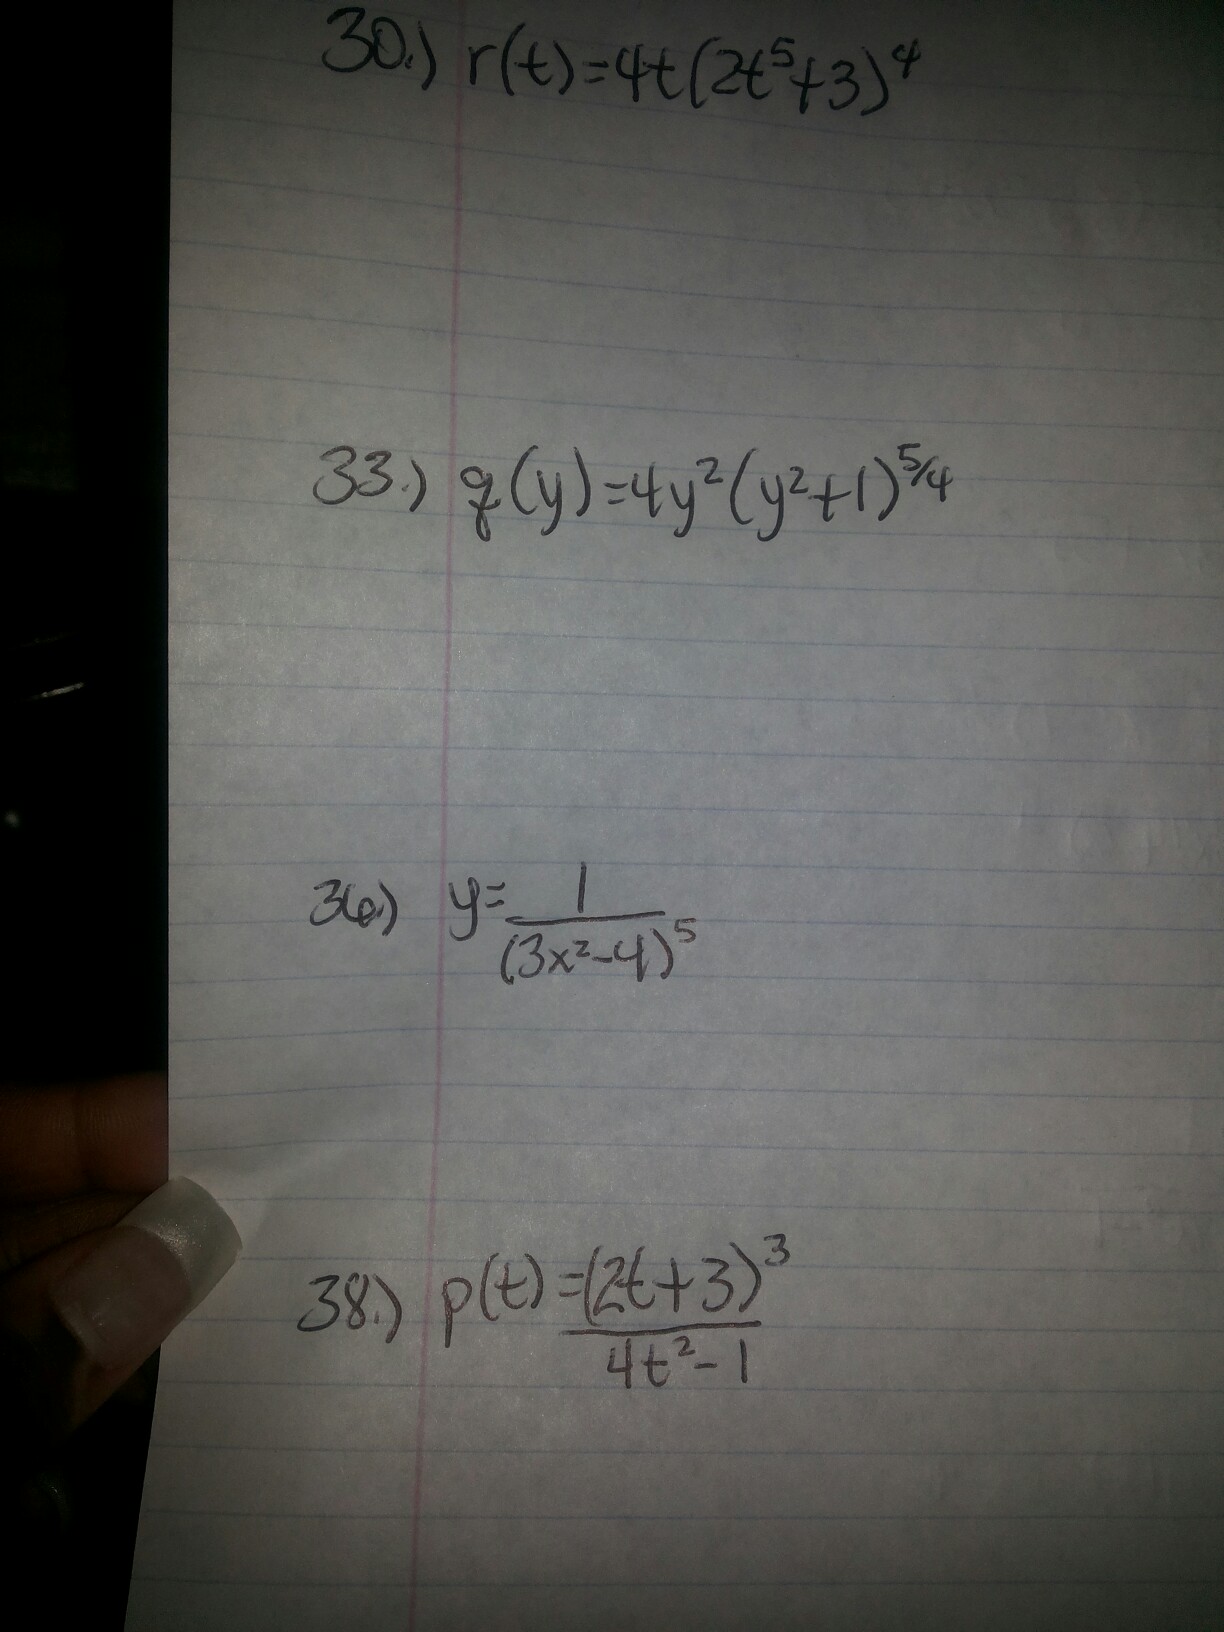 30.) r(t)=4t(2t⁵+3)⁴
33.) q(y)=4y²(y²+1)^5/4
36.) y=1/(3x²-4)⁵
38.) p(t)=(2t+3)³/4t²-1